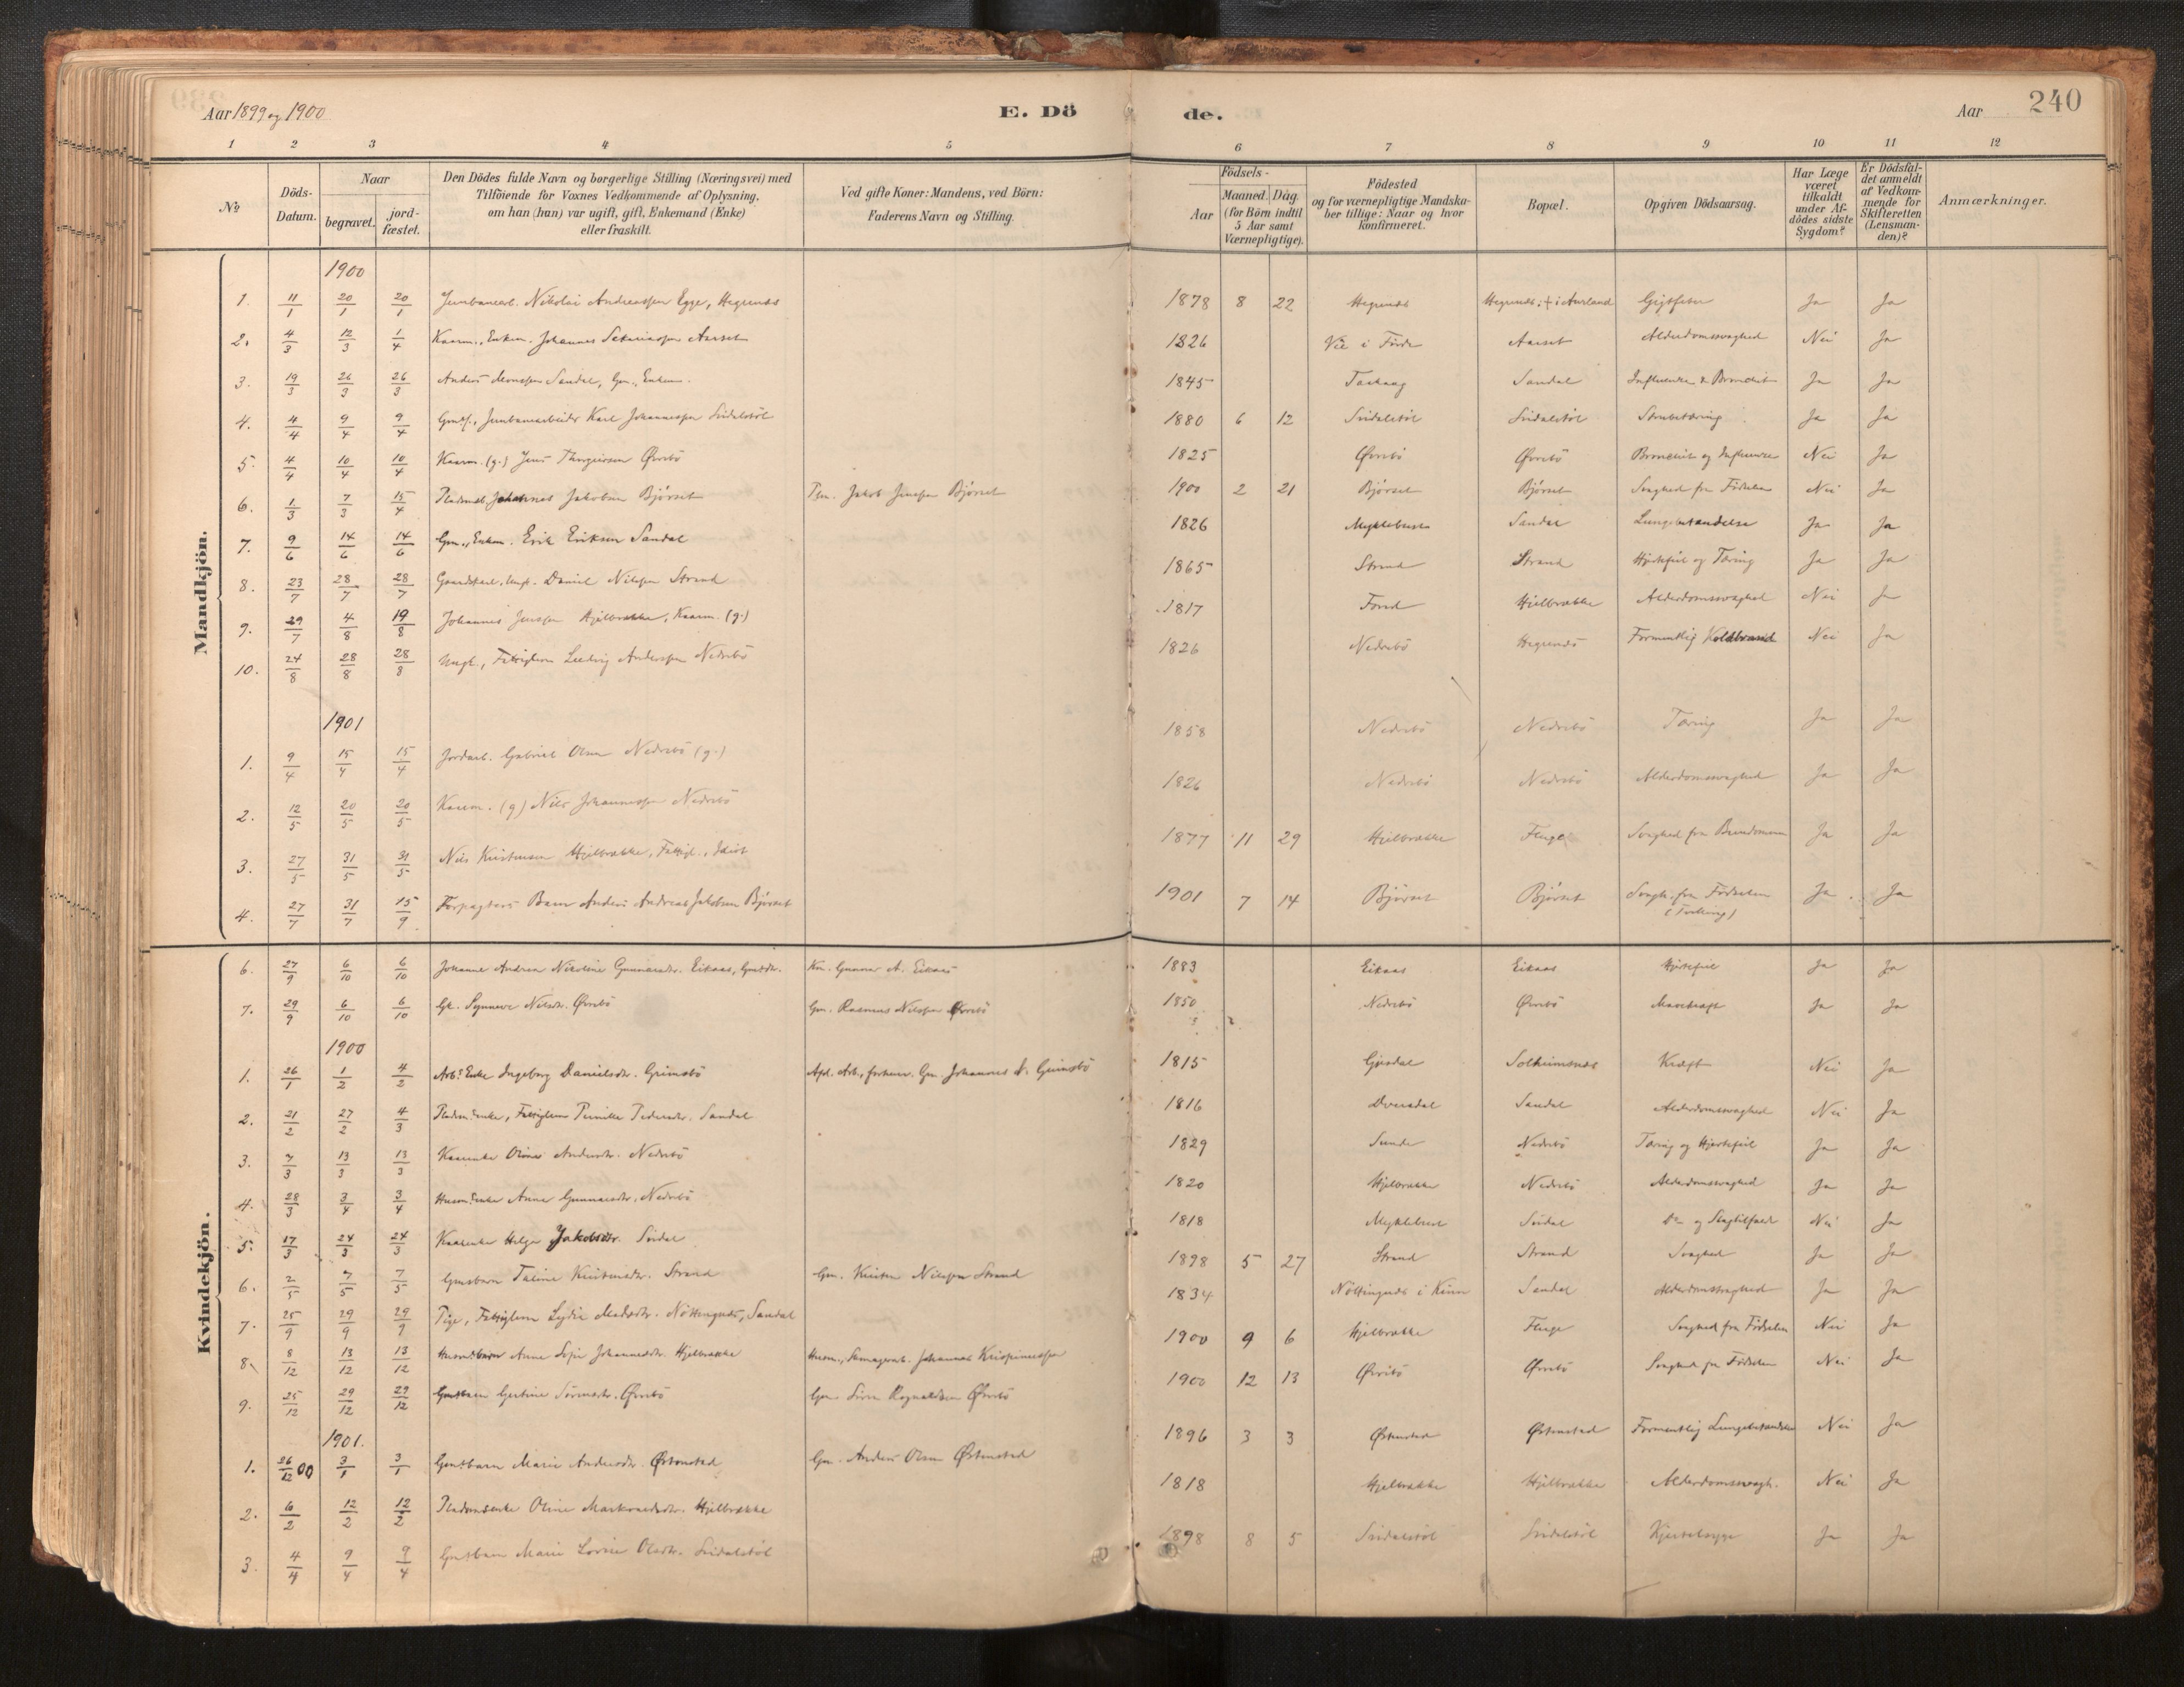 Aar 1899 og 1900
E. Dö
de.
Aar
240
1 2 3 4 5 6 7 8 9 10 11 12
№
Döds-Datum.
Naar
begravet.
jord-fæstet.
Den Dödes fulde Navn og borgerlige Stilling (Næringsvei) med
Tilföiende for Voxnes Vedkommende af Oplysning,
om han (hun) var ugift, gift, Enkemand (Enke)
eller fraskilt.
Ved gifte Koner: Mandens, ved Börn:
Faderens Navn og Stilling.
Födsels-
Aar
Maaned. Dag.
(for Börn indtil
5 Aar samt
Værnepligtige).
Födested
og for værnepligtige Mandska-
ber tillige: Naar og hvor
konfirmeret.
Bopæl.
Opgiven Dödsaarsag.
Har Læge
været
tilkaldt
under Af-
dödes sidste
Sygdom?
Er Dödsfal-
det anmeldt
af Vedkom-
mende for
Skifteretten
(Lensman-
den)?
Anmærkninger.
Mandkjön.
1900
1. 11/1 20/1 20/1 Nikolai Andreassen Egge, Hegrenæs 1878 8 22 Hegrenæs Hegrenæs, † i Aurland Gigtfeber Ja Ja
2. 4/3 12/3 1/4 Kaarm., Enkem. Johannes Aarset 1826 Vie i Förde Aarset Alderdomssvaghed Nei Ja
3. 19/3 26/3 26/3 Anders Monssen Sandal, Gm., Enkem. 1845 Sandal Influenza & Bronchit Ja Ja
4. 4/4 9/4 9/4 Jernbanearbeider Karl Johannessen 1880 6 12 Strubetæring Ja Ja
5. 4/4 10/4 10/4 Kaarm. (g.) Jens Øvrebö 1825 Øvrebö Øvrebö Bronchit og Influenza Nei Ja
6. 1/3 7/3 15/4 Johannes Jakobsen Bjørset Jakob Jenssen Bjørset 1900 2 21 Bjørset Bjørset Svaghed fra Födselen Nei Ja
7. 9/6 14/6 14/6 Gm., Enkem. Erik Eriksen Sandal 1826 Myklebust Sandal Lungebetændelse Ja Ja
8. 23/7 28/7 28/7 Gaardskarl, Ungk. Daniel Nilssen Strand 1865 Strand Strand Hjertefeil og Tæring Ja Ja
9. 29/7 4/8 19/8 Johannes Jenssen Hjelbrække, Kaarm. (g.) 1817 Fond Hjelbrække Alderdomssvaghed Nei Ja
10. 24/8 28/8 28/8 Ungk., Fattiglem Ludvig Anderssen Nedrebö 1826 Nedrebö Hegrenæs Formentlig Koldbrand Nei Ja
1901
1. 9/4 15/4 15/4 Jordarb. Gabriel Olsen Nedrebö (g.) 1858 Nedrebö Nedrebö Tæring Ja Ja
2. 12/5 20/5 20/5 Kaarm. (g) Nils Johannessen Nedrebö 1826 Nedrebö Nedrebö Alderdomssvaghed Ja Ja
3. 27/5 31/5 31/5 Nils Kristensen Hjelbrække, Fattigl., Idiot 1877 11 29 Hjelbrække Fluge Svaghed fra Barndommen Ja Ja
4. 27/7 31/7 15/9 Forpagters Barn Anders Andreas Jakobsen Bjørset 1901 7 14 Bjørset Bjørset Svagh. fra Födselen (Tvilling) Ja Ja
Kvindekjön.
6. 27/9 6/10 6/10 Johanne Andrea Nikoline Gunnarsdtr. Eikaas, Gmsdtr. Gunnar A. Eikaas 1883 Eikaas Eikaas Hjertefeil Ja Ja
7. 29/9 6/10 6/10 Gk. Synneve Nilsdtr. Øvrebö Gm. Rasmus Nilssen Øvrebö 1850 Nedrebö Øvrebö Mavekræft Ja Ja
1900
1. 26/1 1/2 4/2 Arb. Enke Ingeborg Danielsdtr. Grimsbö Gm. Johannes Grimsbö 1815 Gjesdal Solheimsnæs Kræft Nei Ja
2. 21/2 27/2 4/3 Fattiglem Pernille Pedersdtr. Sandal 1816 Dvergsdal Sandal Alderdomssvaghed Nei Ja
3. 7/3 13/3 13/3 Kaarenke Andersdtr. Nedrebö 1829 Sunde Nedrebö Tæring og Hjertefeil Ja Ja
4. 28/3 3/4 3/4 Husm. Enke Anna Gunnarsdtr. Nedrebö 1820 Hjelbrække Nedrebö Alderdomssvaghed Ja Ja
5. 17/3 24/3 24/3 Kaarenke Helga Jakobsdtr. 1818 Myklebust Do og Slagtilfæld Nei Ja
6. 2/5 7/5 7/5 Gmsbarn Taline Kristensdtr. Strand Gm. Kristen Nilssen Strand 1898 5 27 Strand Strand Svaghed Ja Ja
7. 25/9 29/9 29/9 Pige, Fattiglem Lydia Madsdtr. Nöttingnæs, Sandal 1834 Nöttingnæs i Kinn Sandal Alderdomssvaghed Ja Ja
8. 8/12 13/12 13/12 Husmbarn Anna Sofie Johannesdtr. Hjelbrække Husm., Johannes Krispinussen 1900 9 6 Hjelbrække Fluge Svaghed fra Födselen Nei Ja
9. 25/12 29/12 29/12 Gmsbarn Gertine Sörensdtr. Øvrebö Gm. Sören Rognaldsen Øvrebö 1900 12 13 Øvrebö Øvrebö Svaghed fra Födselen Nei Ja
1901.
1. 26/12 00 3/1 3/1 Gmsbarn Marie Andersdtr. Østenstad Gm. Anders Olsen Østenstad 1896 3 3 Østenstad Østenstad Formentlig Lungebetændelse Nei Ja
2. 6/2 12/2 12/2 Pladsmandsenke Oline Hjelbrække 1818 Hjelbrække Hjelbrække Alderdomssvagh. Nei Ja
3. 4/4 9/4 9/4 Gmsbarn Marie Lovise Olsdtr. 1898 8 5 Kjertelsyge Ja Ja